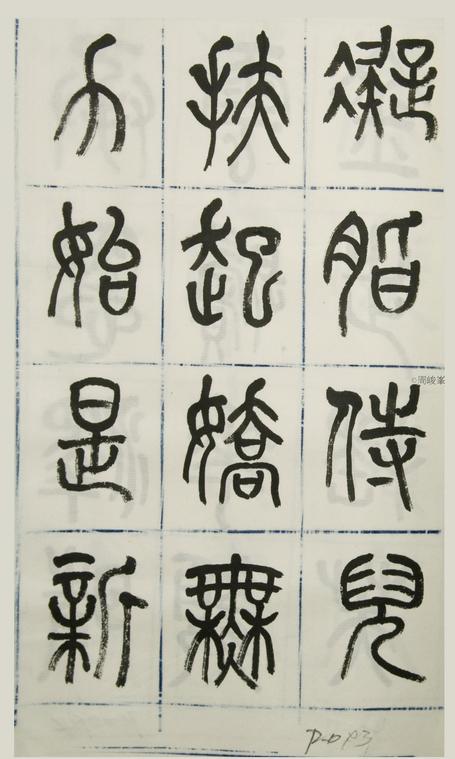 凝脂侍兒
扶起嬌無
力始是新
©周峻峯
P-D93